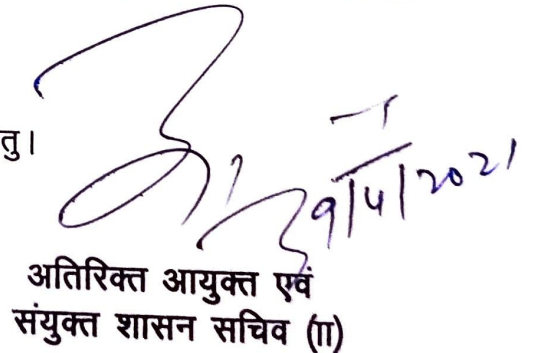 तु।
9/4/2021
अतिरिक्त आयुक्त एवं
संयुक्त शासन सचिव (II)